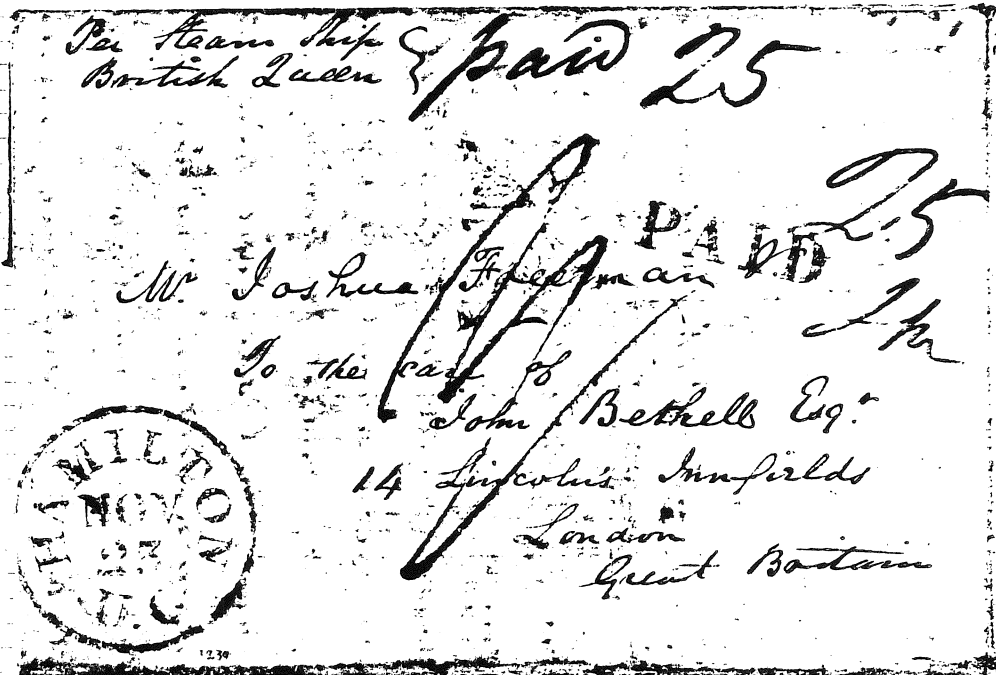 Per Steam Ship
British Queen
paid 25
25
PAID
Mr Joshua Freeman
To the care of
John Bethell Esqr
14 Lincoln's Innfields
London
Great Britain
HAMILTON
NOV
23
U.C
1239